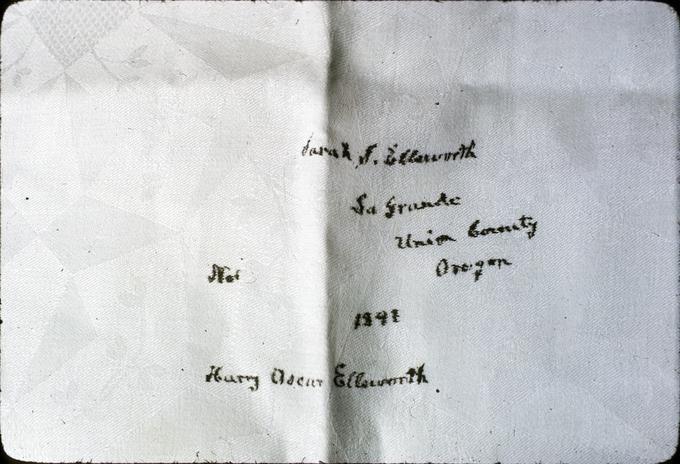 Sarah J. Ellsworth
La Grande
Union County
Oregon
Harry Oscar Ellsworth